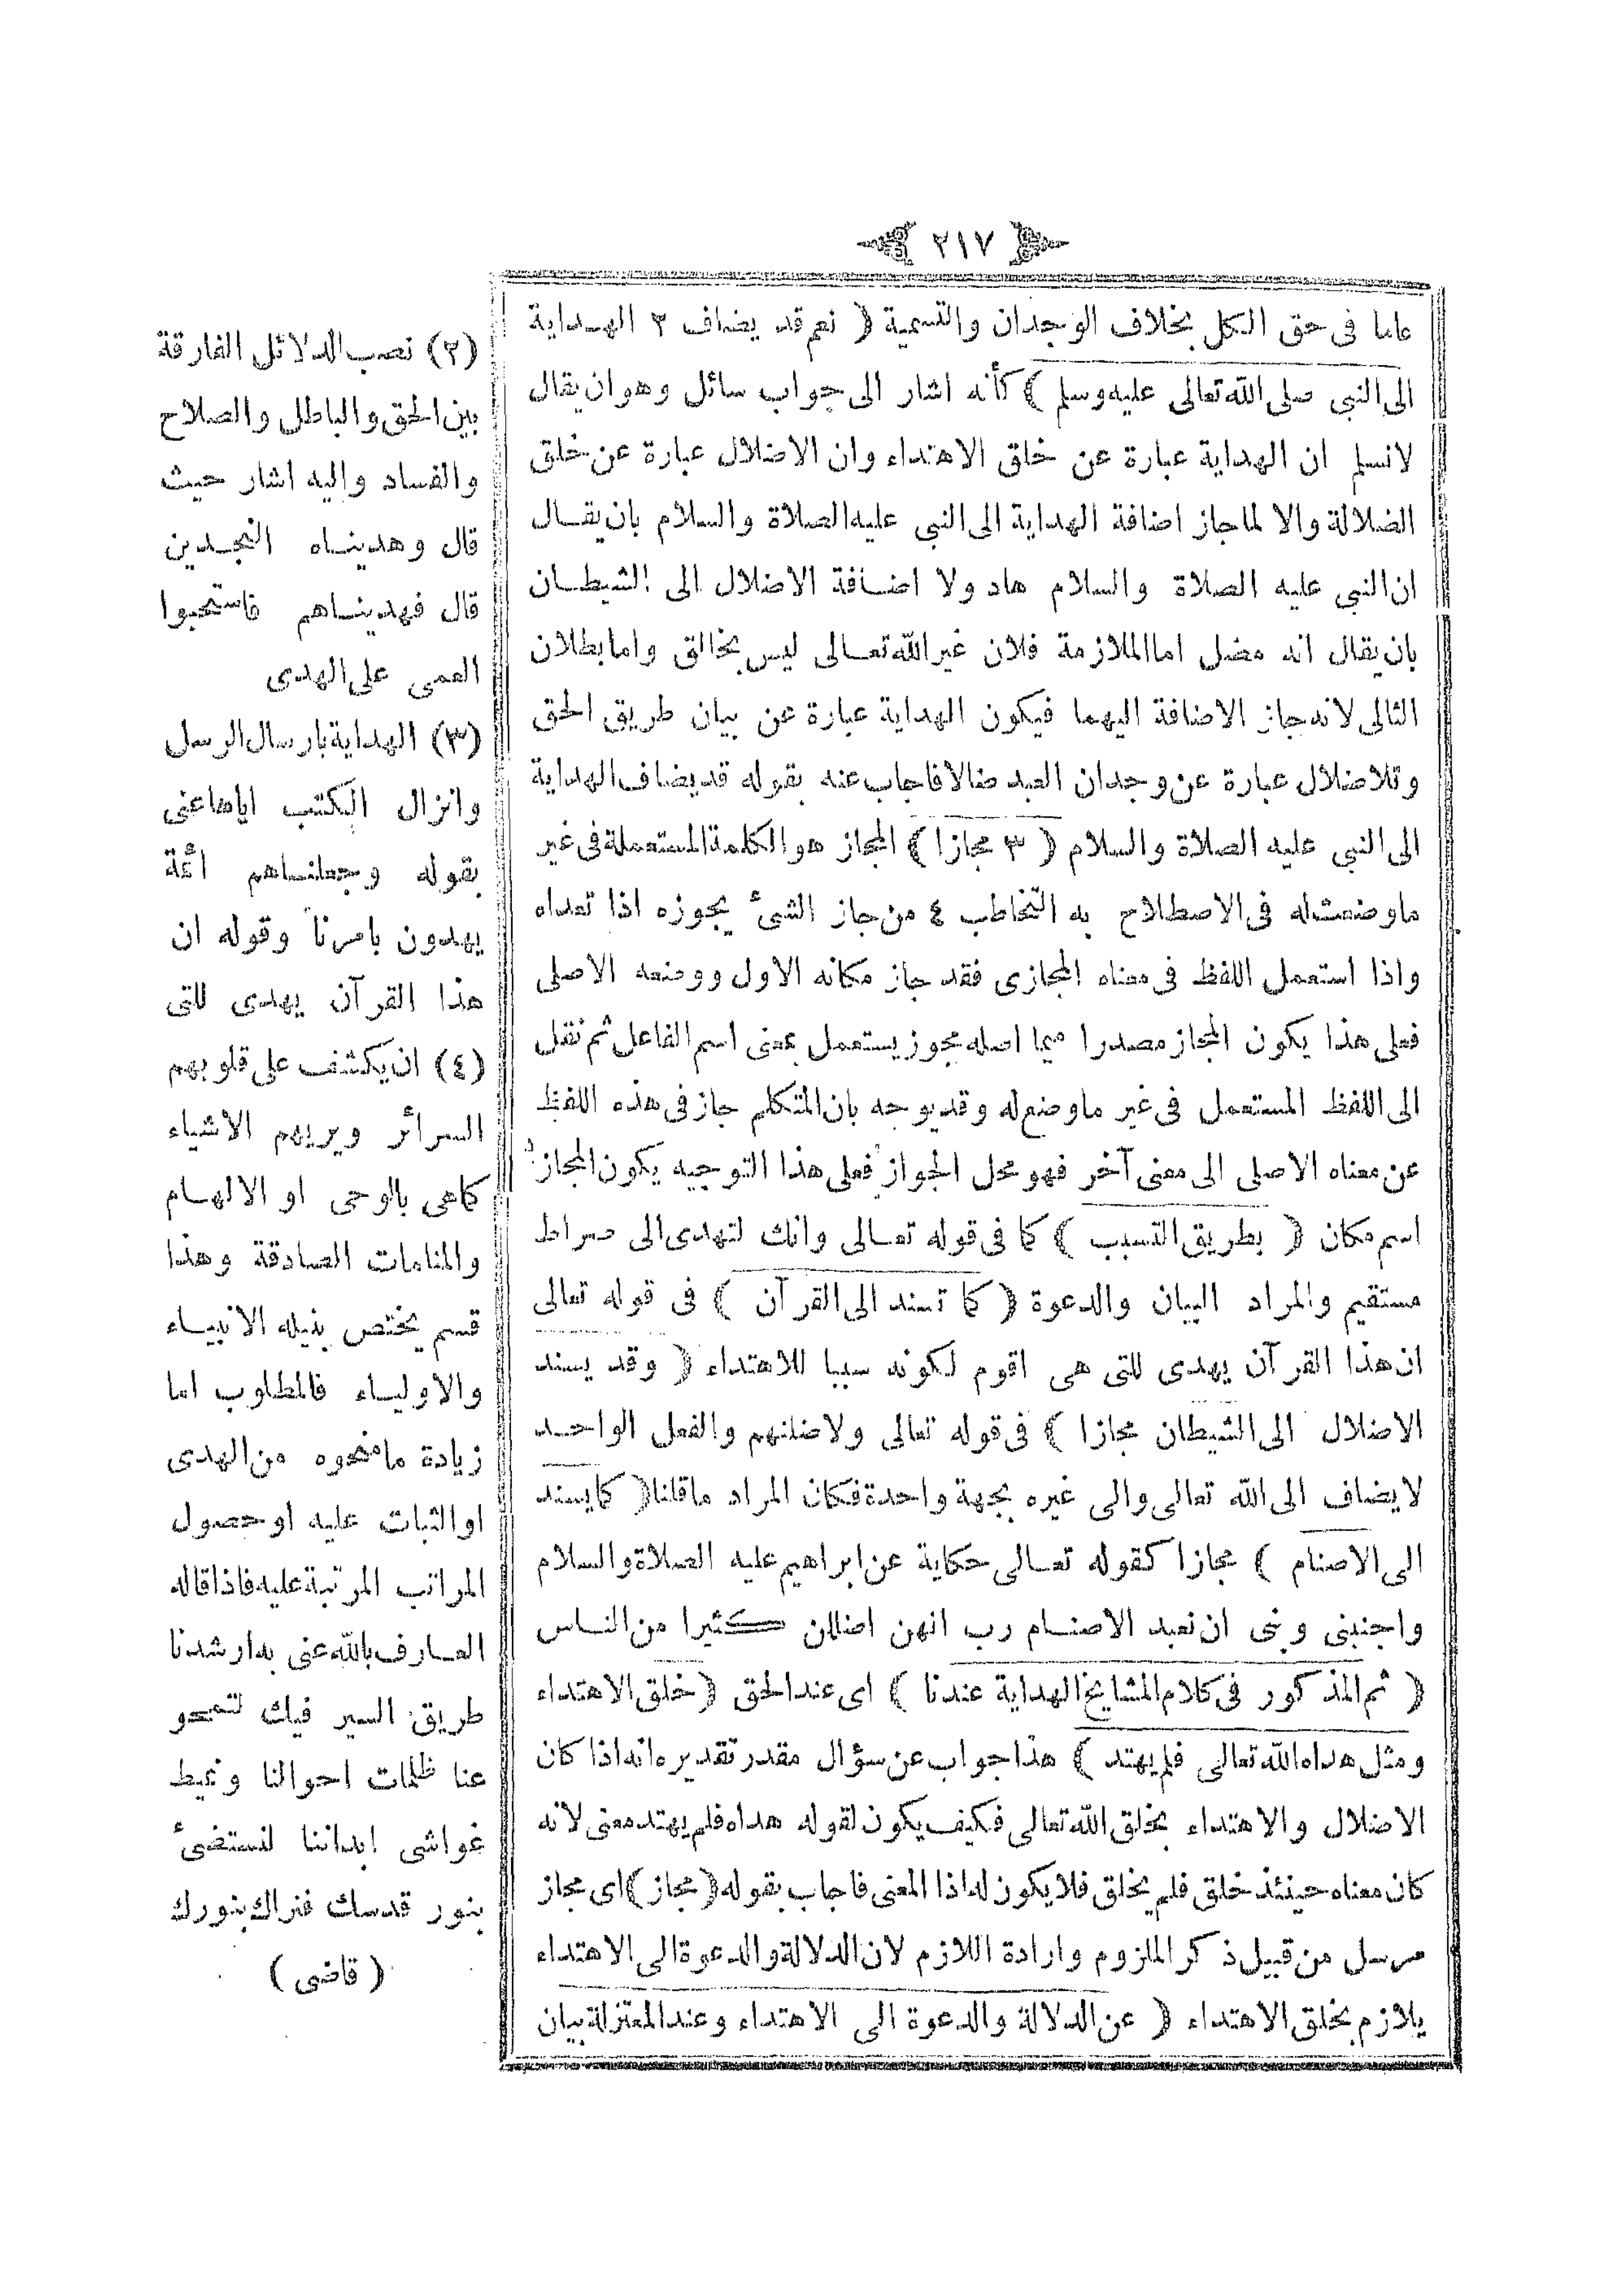 ٢١٧
عاما فى حق الكل بخلاف الوجدان والتسمية ( نعم قد يضاف ٢ الهداية
الى النبى صلى الله تعالى عليه وسلم ) كأنه اشار الى جواب سائل وهو ان يقال
لانسلم ان الهداية عبارة عن خلق الاهتداء وان الاضلال عبارة عن خلق
الضلالة والا لما جاز اضافة الهداية الى النبى عليه الصلاة والسلام بان يقال
ان النبى عليه الصلاة والسلام هاد ولا اضافة الاضلال الى الشيطان
بان يقال انه مضل اما الملازمة فلان غير الله تعالى ليس بخالق واما بطلان
التالى لانه جاز الاضافة اليهما فيكون الهداية عبارة عن بيان طريق الحق
وتلاضلال عبارة عن وجدان العبد ضالا فاجاب عنه بقوله قد يضاف الهداية
الى النبى عليه الصلاة والسلام ( ٣ مجازا ) المجاز هو الكلمة المستعملة فى غير
ماوضعت له فى الاصطلاح به التخاطب ٤ من جاز الشئ يجوزه اذا تعداه
واذا استعمل اللفظ فى معناه المجازى فقد جاز مكانه الاول ووضعه الاصلى
فعلى هذا يكون المجاز مصدرا ميما اصله مجوز يستعمل بمعنى اسم الفاعل ثم نقل
الى اللفظ المستعمل فى غير ماوضع له وقد يوجه بان المتكلم جاز فى هذه اللفظ
عن معناه الاصلى الى معنى آخر فهو محل الجواز فعلى هذا التوجيه يكون المجاز
اسم مكان ( بطريق التسبب ) كما فى قوله تعالى وانك لتهدى الى صراط
مستقيم والمراد البيان والدعوة ( كما تسند الى القرآن ) فى قوله تعالى
ان هذا القرآن يهدى للتى هى اقوم لكونه سببا للاهتداء ( وقد يسند
الاضلال الى الشيطان مجازا ) فى قوله تعالى ولاضلنهم والفعل الواحد
لايضاف الى الله تعالى والى غيره بجهة واحدة فكان المراد ماقلنا ( كما يسند
الى الاصنام ) مجازا كقوله تعالى حكاية عن ابراهيم عليه الصلاة والسلام
واجنبنى وبنى ان نعبد الاصنام رب انهن اضللن كثيرا من الناس
( ثم المذكور فى كلام المشايخ الهداية عندنا ) اى عند الحق ( خلق الاهتداء
ومثل هداه الله تعالى فلم يهتد ) هذا جواب عن سؤال مقدر تقديره انه اذا كان
الاضلال والاهتداء بخلق الله تعالى فكيف يكون لقوله هداه فلم يهتد معنى لانه
كان معناه حينئذ خلق فلم يخلق فلا يكون لهاذا المعنى فاجاب بقوله ( مجاز ) اى مجاز
مرسل من قبيل ذكر الملزوم وارادة اللازم لان الدلالة والدعوة الى الاهتداء
يلازم بخلق الاهتداء ( عن الدلالة والدعوة الى الاهتداء وعند المعتزلة بيان
(٢) نصب الدلائل الفارقة
بين الحق والباطل والصلاح
والفساد واليه اشار حيث
قال وهديناه النجدين
قال فهديناهم فاستحبوا
العمى على الهدى
(٣) الهداية بارسال الرسل
وانزال الكتب اياها عنى
بقوله وجعلناهم ائمة
يهدون بامرنا وقوله ان
هذا القرآن يهدى للتى
(٤) ان يكشف على قلوبهم
السرائر ويريهم الاشياء
كماهى بالوحى او الالهام
والمنامات الصادقة وهذا
قسم يختص بنيله الانبياء
والاولياء فالمطلوب اما
زيادة مامنحوه من الهدى
او الثبات عليه او حصول
المراتب المرتبة عليه فاذا قاله
العارف بالله عنى به ارشدنا
طريق السير فيك لتمحو
عنا ظلمات احوالنا وتميط
غواشى ابداننا لنستضئ
بنور قدسك فنراك بنورك
( قاضى )